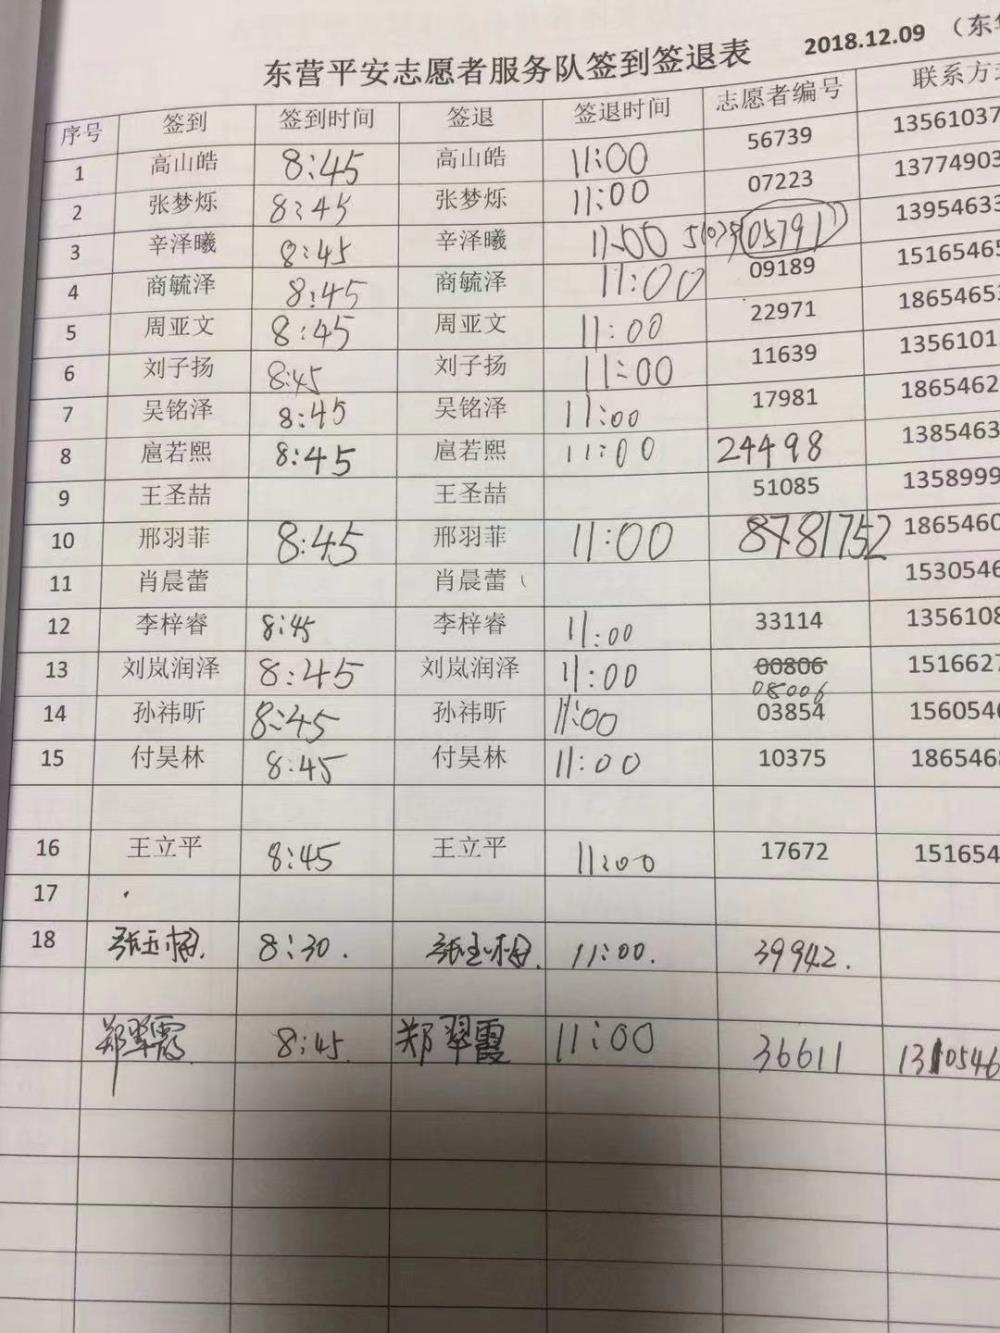 东营平安志愿者服务队签到签退表 2018.12.09 （东
序号 签到 签到时间 签退 签退时间 志愿者编号 联系方式
1 高山皓 8:45 高山皓 11:00 56739 13561037
2 张梦烁 8:45 张梦烁 11:00 07223 13774903
3 辛泽曦 8:45 辛泽曦 11:00 05791 13954633
4 商毓泽 8:45 商毓泽 11:00 09189 15165465
5 周亚文 8:45 周亚文 11:00 22971 18654653
6 刘子扬 8:45 刘子扬 11:00 11639 13561013
7 吴铭泽 8:45 吴铭泽 11:00 17981 1865462
8 扈若熙 8:45 扈若熙 11:00 24498 1385463
9 王圣喆 王圣喆 51085 1358999
10 邢羽菲 8:45 邢羽菲 11:00 8781752 1865460
11 肖晨蕾 肖晨蕾 1530546
12 李梓睿 8:45 李梓睿 11:00 33114 1356108
13 刘岚润泽 8:45 刘岚润泽 11:00 00806 1516627
08006
14 孙祎昕 8:45 孙祎昕 11:00 03854 1560546
15 付昊林 8:45 付昊林 11:00 10375 1865468
16 王立平 8:45 王立平 11:00 17672 151654
17
18 张玉梅. 8:30. 张玉梅. 11:00. 39942.
郑翠霞 8:45. 郑翠霞 11:00 36611 1310546